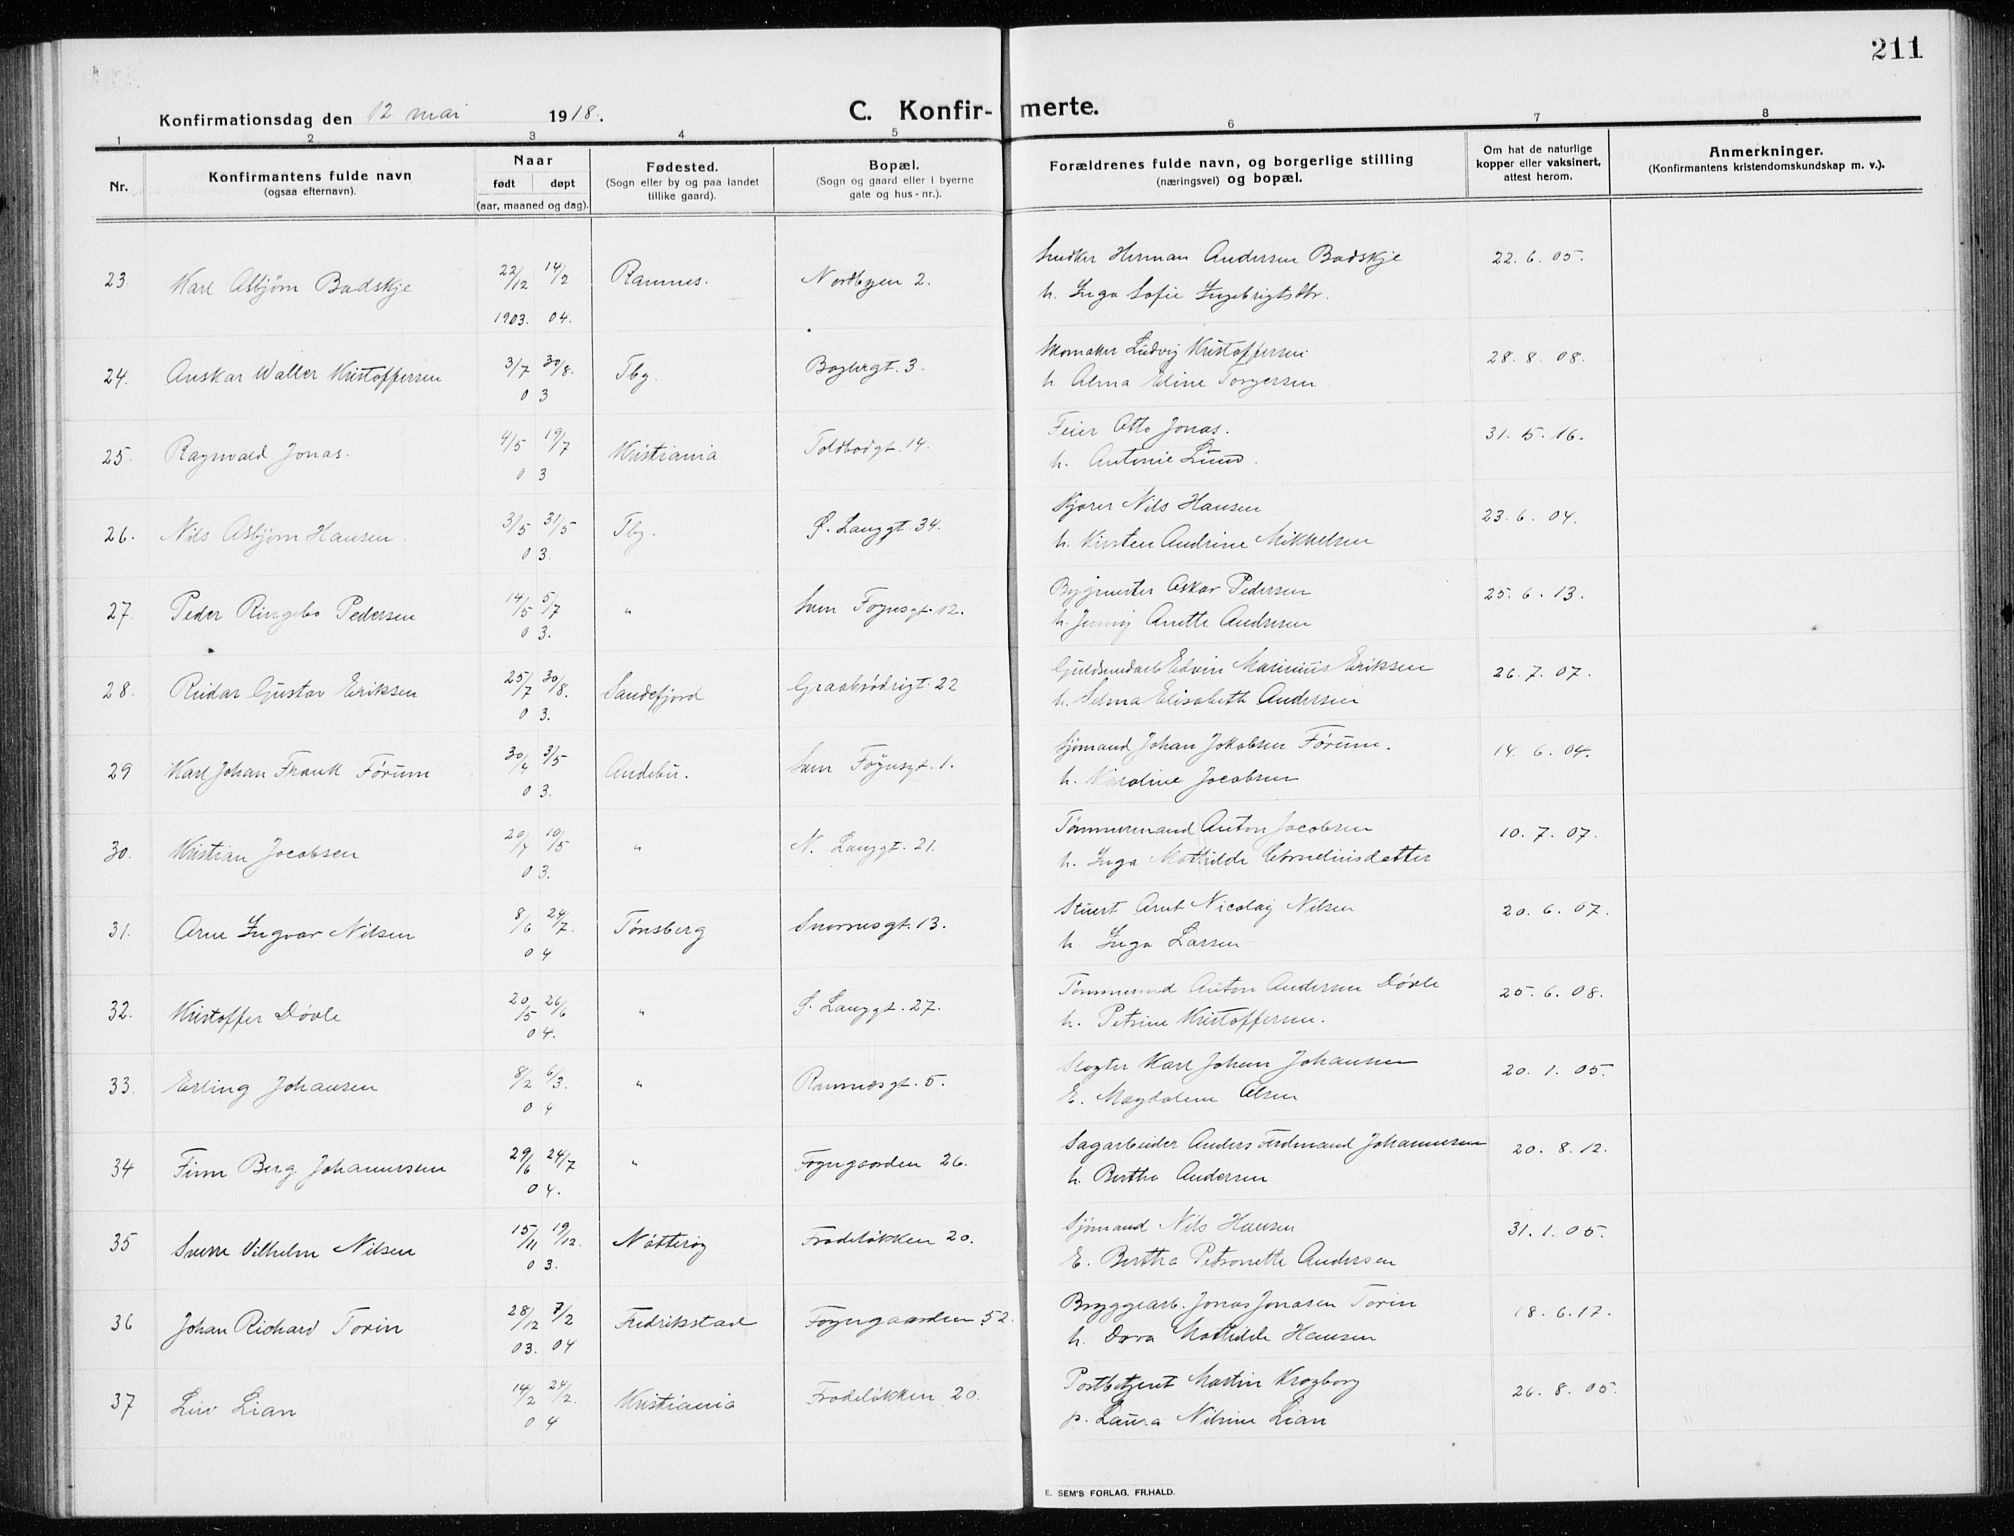 211
Konfirmationsdag den 12 mai 1918.
C. Konfir-merte.
1 2 3 4 5 6 7 8
Nr.
Konfirmantens fulde navn
(ogsaa efternavn).
Naar
født døpt
(aar, maaned og dag).
Fødested.
(Sogn eller by og paa landet
tillike gaard).
Bopæl.
(Sogn og gaard eller i byerne
gate og hus-nr.).
Forældrenes fulde navn, og borgerlige stilling
(næringsvei) og bopæl.
Om hat de naturlige
kopper eller vaksinert,
attest herom.
Anmerkninger.
(Konfirmantens kristendomskundskap m. v.).
Snedker Herman Andersen Badskje
23. Karl Asbjørn Badskje 22/12 14/2 Ramnes. Nordbyen 2. 22. 6. 05.
h. Inga Sofie Ingebrigtsdtr.
1903. 04.
Skomaker Ludvig Kristoffersen
24. Anskar Waller Kristoffersen 3/7 30/8. Tbg. Bøgbergt. 3. 28. 8. 08.
h. Alma Eline Torgersen
0 3
Feier Otto Jonas.
25. Ragnvald Jonas. 4/5 19/7 Kristiania Toldbodgt. 14. 31. 5. 16.
h. Antonie Lund.
0 3
Kjører Nils Hansen
26. Nils Asbjørn Hansen. 3/5 31/5 Tbg. Ø. Langgt. 34. 23. 6. 04.
h. Kirsten Andrine Mikkelsen
0 3.
Bygmester Oskar Pedersen
27. Peder Ringebo Pedersen 14/5 5/7 " Sven Foynsgt. 12. 25. 6. 13.
h. Jenny Anette Andresen
0 3.
Guldsmedarb Edvin Marinius Eriksen
28. Reidar Gustav Eriksen 25/7 30/8. Sandefjord Graabrødrigt. 22 26. 7. 07.
h. Selma Elisabeth Andersen
0 3.
Sjømand Johan Jokobsen Førum.
29 Karl Johan Frank Førum 30/4 3/5 Andebu. Sven Foynsgt. 1. 14. 6. 04.
h. Karoline Jacobsen
0 3.
Tømmermand Anton Jacobsen
30. Kristian Jacobsen 20/4 10/5 " N. Langgt. 21. 10. 7. 07.
h. Inga Mathilde Corneliusdatter
0 3.
Stuert Arnt Nicolay Nilsen
31. Arne Ingvar Nilsen 8/6 24/7. Tønsberg Snorresgt. 13. 20. 6. 07.
h. Inga Larsen
0 4
Tømmermand Anton Andersen Døvle
32. Kristoffer Døvle 20/5 26/6 " Ø. Langgt. 27. 25. 6. 08.
h. Petrine Kristoffersen.
0 4.
Slagter Karl Johan Johansen
33. Erling Johansen 8/2 6/3. " Ramnesgt. 5. 20. 1. 05.
E. Magdalene Olsen
0 4
Sagarbeider Anders Ferdinand Johannessen
34 Finn Berg Johannessen 29/6 24/7 " Foyngaarden 26. 20. 8. 12.
h. Berthe Andersen
0 4.
Sjømand Nils Hansen
35 Sverre Vilhelm Nilsen 15/11 19/12. Nøtterøy Frodeløkken 20. 31. 1. 05.
E. Bertha Petronette Andersen
0 3.
Bryggearb. Jonas Jonasen Torin
36 Johan Richard Torin 28/12 7/2 Fredriksstad Foyngaarden 52. 18. 6. 17.
h. Dora Mathilde Hansen
03. 04
Postbetjent Martin Krogborg
37 Liv Lian 14/2 24/2. Kristiania Frodeløkken 20. 26. 8. 05.
p. Laura Nilsine Lian
0 4
E. SEM'S FORLAG, FR.HALD.